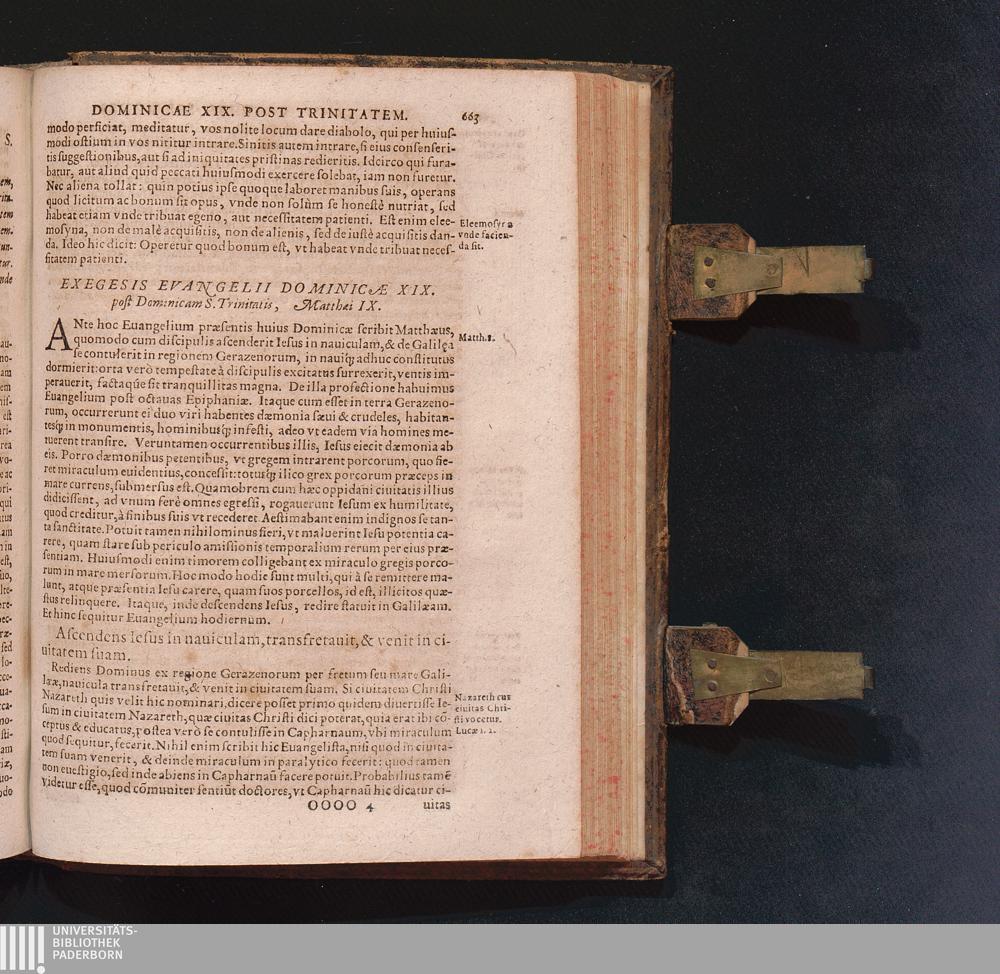 DOMINICAE XIX. POST TRINITATEM. 663
modo perficiat, meditatur, vos nolite locum dare diabolo, qui per huiuſ-
modi oſtium in vos nititur intrare. Sinitis autem intrare, ſi eius conſenſeri-
tis ſuggeſtionibus, aut ſi ad iniquitates priſtinas redieritis. Idcirco qui fura-
batur, aut aliud quid peccati huiuſmodi exercere ſolebat, iam non furetur.
Nec aliena tollat: quin potius ipſe quoque laboret manibus ſuis, operans
quod licitum ac bonum ſit opus, vnde non ſolùm ſe honeſtè nutriat, ſed
habeat etiam vnde tribuat egeno, aut neceſſitatem patienti. Eſt enim elee-
moſyna, non de malè acquiſitis, non de alienis, ſed de iuſtè acquiſitis dan-
da. Ideo hic dicit: Operetur quod bonum eſt, vt habeat vnde tribuat neceſ-
ſitatem patienti.
Eleemoſyna
vnde facien-
da ſit.
EXEGESIS EVANGELII DOMINICÆ XIX.
poſt Dominicam S. Trinitatis, Matthæi IX.
ANte hoc Euangelium præſentis huius Dominicæ ſcribit Matthæus,
quomodo cum diſcipulis aſcenderit Ieſus in nauiculam, & de Galilęa
ſe contulerit in regionem Gerazenorum, in nauiq; adhuc conſtitutus
dormierit: orta verò tempeſtate à diſcipulis excitatus ſurrexerit, ventis im-
perauerit, factaqúe ſit tranquillitas magna. De illa profectione habuimus
Euangelium poſt octauas Epiphaniæ. Itaque cum eſſet in terra Gerazeno-
rum, occurrerunt ei duo viri habentes dæmonia ſæui & crudeles, habitan-
tesq; in monumentis, hominibusq; infeſti, adeo vt eadem via homines me-
tuerent tranſire. Veruntamen occurrentibus illis, Ieſus eiecit dæmonia ab
eis. Porro dæmonibus petentibus, vt gregem intrarent porcorum, quo fie-
ret miraculum euidentius, conceſſit: totusq; ilico grex porcorum præceps in
mare currens, ſubmerſus eſt. Quamobrem cum hæc oppidani ciuitatis illius
didiciſſent, ad vnum ferè omnes egreſſi, rogauerunt Ieſum ex humilitate,
quod creditur, à finibus ſuis vt recederet. Aeſtimabant enim indignos ſe tan-
ta ſanctitate. Potuit tamen nihilominus fieri, vt maluerint Ieſu potentia ca-
rere, quam ſtare ſub periculo amiſſionis temporalium rerum per eius præ-
ſentiam. Huiuſmodi enim timorem colligebant ex miraculo gregis porco-
rum in mare merſorum. Hoc modo hodie ſunt multi, qui à ſe remittere ma-
lunt, atque præſentia Ieſu carere, quam ſuos porcellos, id eſt, illicitos quæ-
ſtus relinquere. Itaque, inde deſcendens Ieſus, redire ſtatuit in Galilæam.
Et hinc ſequitur Euangelium hodiernum.
Matth. 8.
Aſcendens Ieſus in nauiculam, transfretauit, & venit in ci-
uitatem ſuam.
Rediens Dominus ex regione Gerazenorum per fretum ſeu mare Gali-
lææ, nauicula transfretauit, & venit in ciuitatem ſuam. Si ciuitatem Chriſti
Nazareth quis velit hic nominari, dicere poſſet primo quidem diuertiſſe Ie-
ſum in ciuitatem Nazareth, quæ ciuitas Chriſti dici poterat, quia erat ibi cō-
ceptus & educatus, poſtea verò ſe contuliſſe in Capharnaum, vbi miraculum
quod ſequitur, fecerit. Nihil enim ſcribit hic Euangeliſta, niſi quod in ciuita-
tem ſuam venerit, & deinde miraculum in paralytico fecerit: quod tamen
non eueſtigio, ſed inde abiens in Capharnaū facere potuit. Probabilius tamē
videtur eſſe, quod cōmuniter ſentiūt doctores, vt Capharnaū hic dicatur ci-
Nazareth cur
ciuitas Chri-
ſti vocetur.
Lucæ 1. 2.
OOOO 4 uitas
UNIVERSITÄTS-
BIBLIOTHEK
PADERBORN